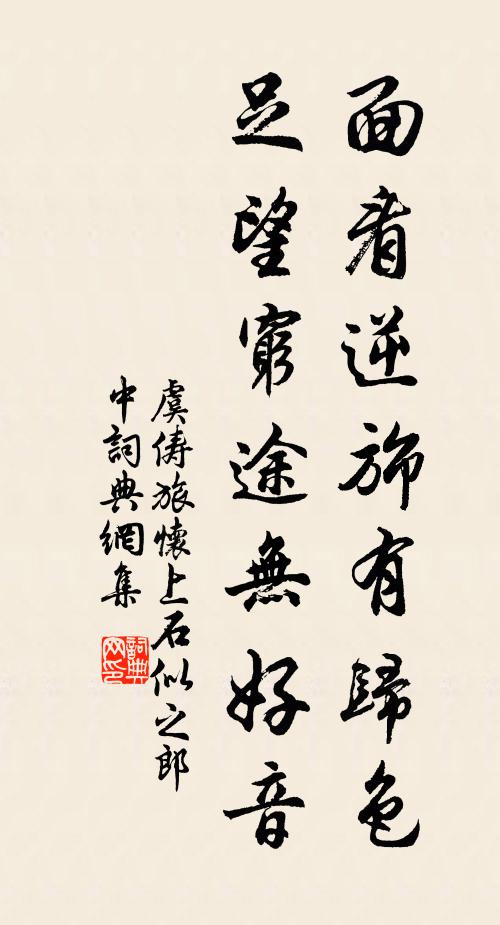 面看逆旅有歸色
足望窮途無好音
虞儔旅懷上石似之郎
中詞典網集
詞典網印